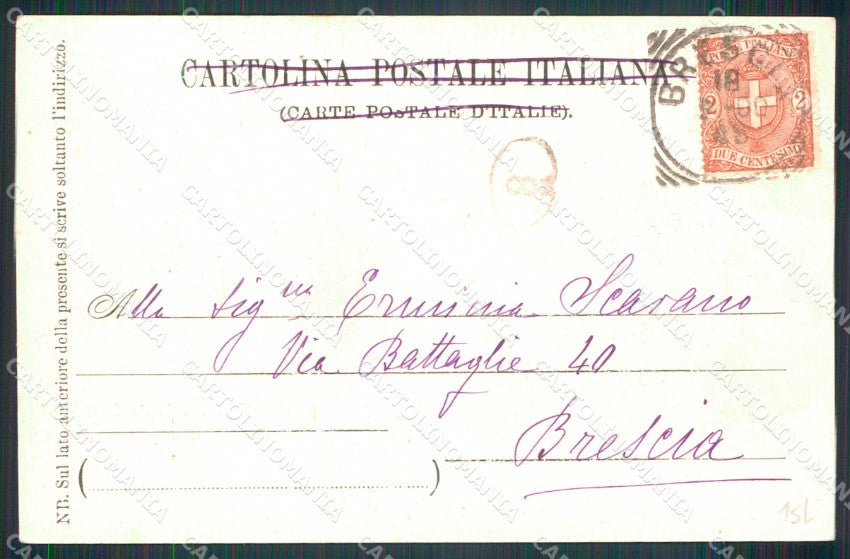 CARTOLINA POSTALE ITALIANA
(CARTE POSTALE D'ITALIE).
POSTE ITALIANE
2 2
DUE CENTESIMI
BRESCIA
18
8
Alla Sig.na Erminia Scarano
Via Battaglie 40
Brescia
( )
NB. Sul lato anteriore della presente si scrive soltanto l'indirizzo.
15L
CARTOLINOMANIA